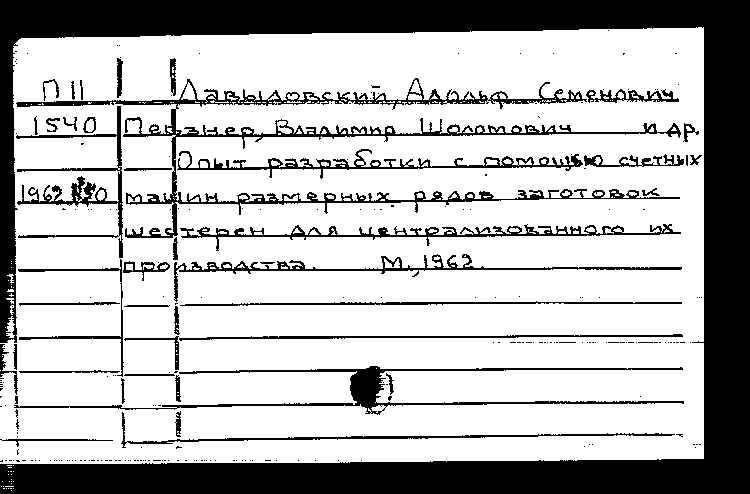 П 11 Давыдовский, Адольф Семенович
1540 Певзнер, Владимир Шоломович и др.
Опыт разработки с помощью счетных
1962 машин размерных рядов заготовок
шестерен для централизованного их
производства. М., 1962.